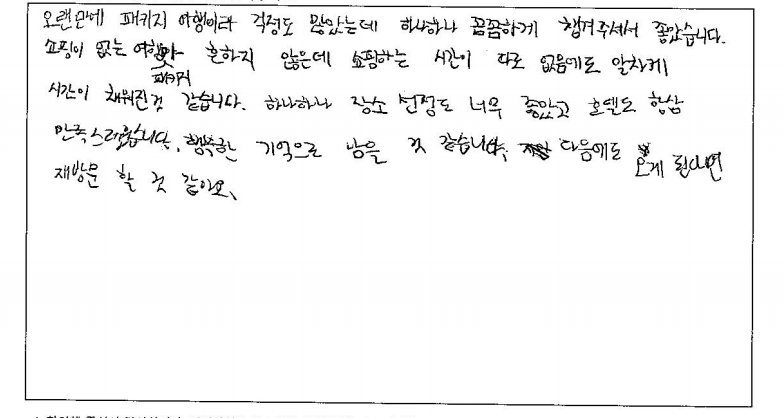 오랜만에 패키지 여행이라 걱정도 많았는데 하나하나 꼼꼼하게 챙겨주셔서 좋았습니다.
쇼핑이 없는 패키지 흔하지 않은데 쇼핑하는 시간이 따로 없음에도 알차게
시간이 채워진것 같습니다. 하나하나 장소 선정도 너무 좋았고 호텔도 항상
만족스러웠습니다. 행복한 기억으로 남을 것 같습니다. 다음에도 오게 된다면
재방문 할 것 같아요.